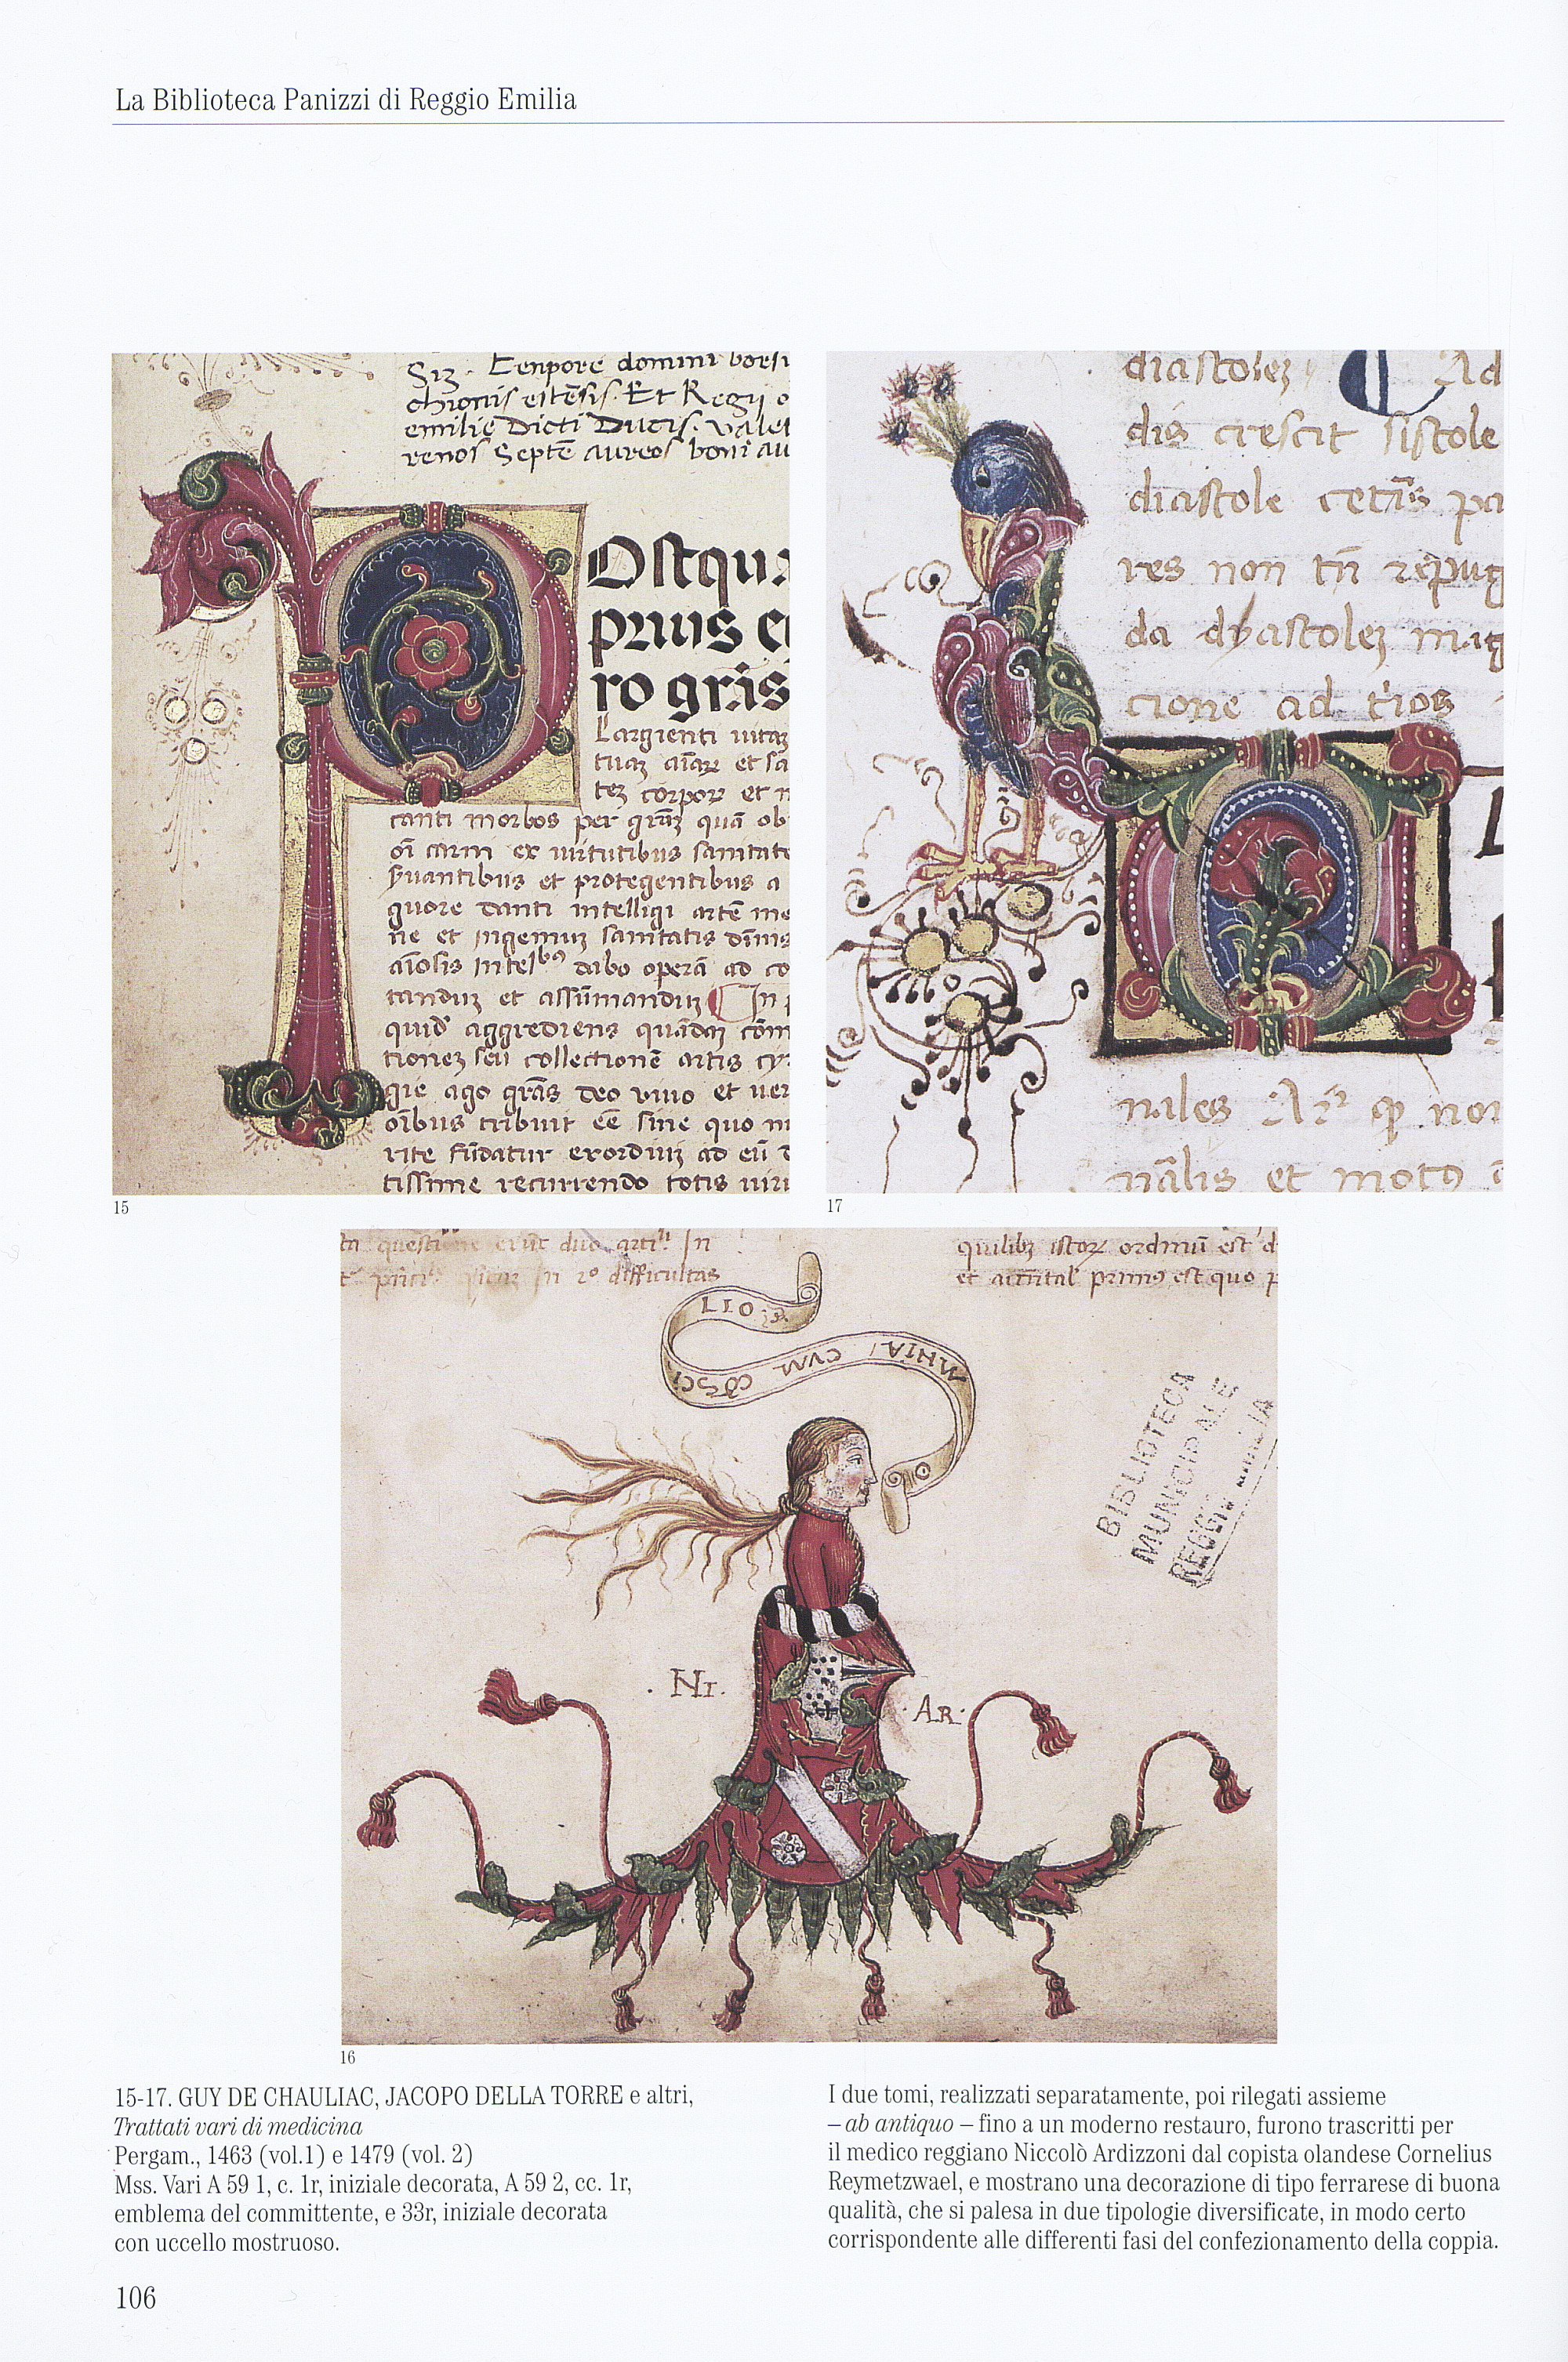 La Biblioteca Panizzi di Reggio Emilia
Tenpore domini borsi
chionis estēsis. Et Regij
emilie Dicti Ducis. valet
renos Septē aureos boni au
Ostqua
prius
ro gr̄as
Largienti
corpoꝝ et
canti morbos per grāꝫ quā ob
ex uirtutibus sanitatē
et protegentibus a
guore danti intelligi artē me
ne et ingeniuꝫ sanitatis
dabo operā ad
tanduꝫ et assūmanduꝫ In
quid aggrediens quādaꝫ cōm
tioneꝫ seu collectionē artis
gie ago grās deo viuo et uer
oībus tribuit ēē sine quo
rite fūdatur exordiuꝫ ad eū
tissime recurrendo totis uiri
15
diastoleꝫ Ad
dis crescit sistole
diastole
res non tn̄ repug
da dyastoleꝫ mag
cione ad
nales
nālis et
17
duo In
In 2º difficultas
ordinū est
primꝰ est quo
LIO
MNIA CVM CŌSCI
O
BIBLIOTECA
MUNICIPALE
REGGIO EMILIA
· NI ·
· AR ·
16
15-17. GUY DE CHAULIAC, JACOPO DELLA TORRE e altri,
Trattati vari di medicina
Pergam., 1463 (vol.1) e 1479 (vol. 2)
Mss. Vari A 59 1, c. 1r, iniziale decorata, A 59 2, cc. 1r,
emblema del committente, e 33r, iniziale decorata
con uccello mostruoso.
I due tomi, realizzati separatamente, poi rilegati assieme
– ab antiquo – fino a un moderno restauro, furono trascritti per
il medico reggiano Niccolò Ardizzoni dal copista olandese Cornelius
Reymetzwael, e mostrano una decorazione di tipo ferrarese di buona
qualità, che si palesa in due tipologie diversificate, in modo certo
corrispondente alle differenti fasi del confezionamento della coppia.
106